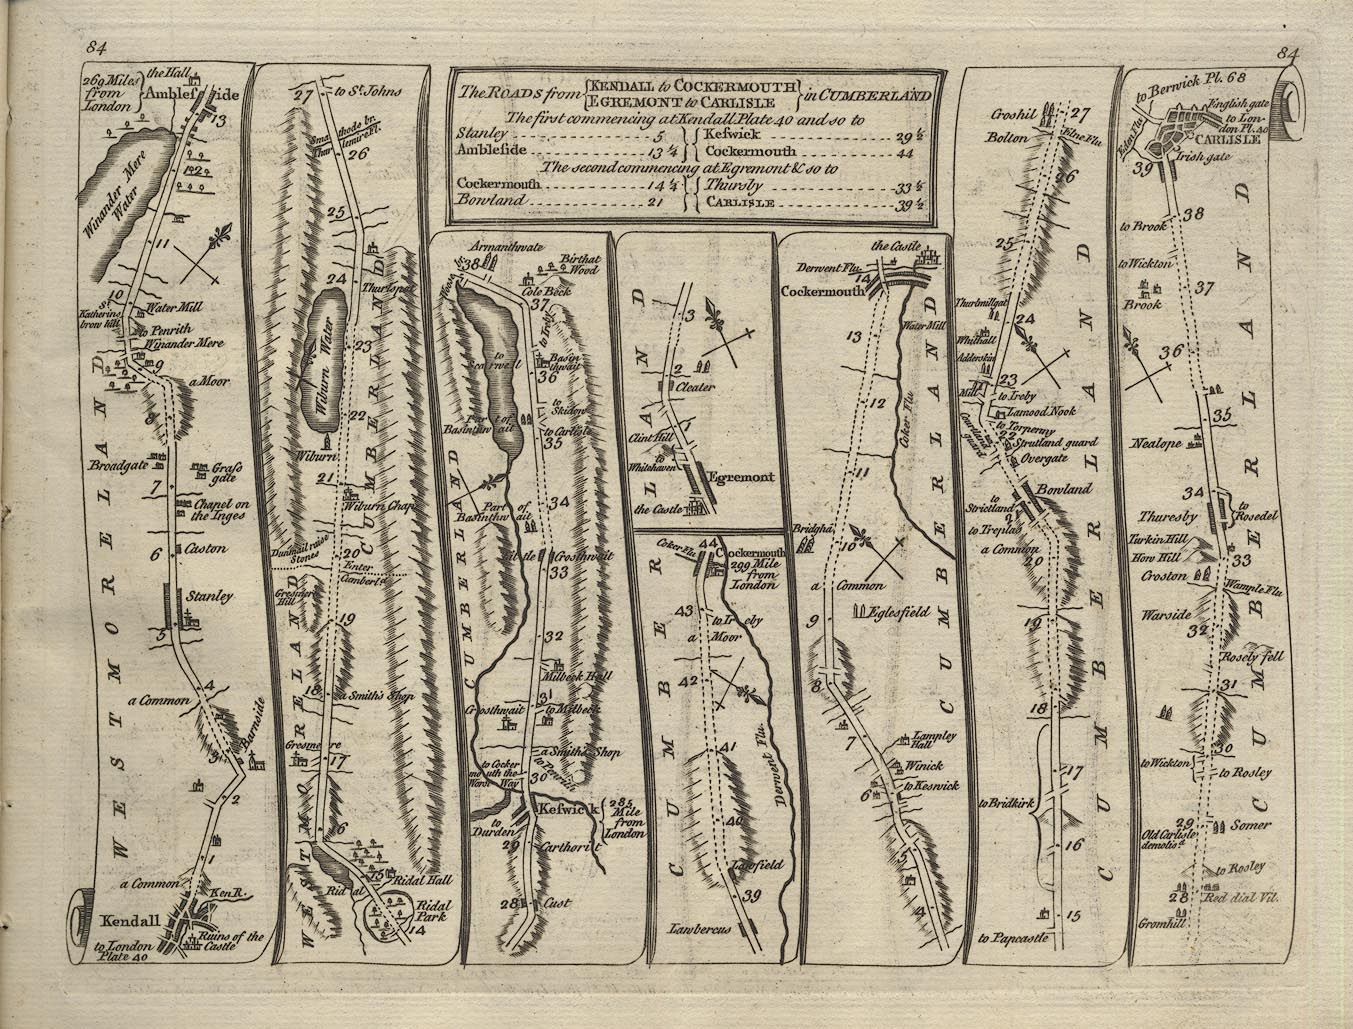 84
84
The ROADS from { KENDALL to COCKERMOUTH
EGREMONT to CARLISLE } in CUMBERLAND
The first commencing at Kendall Plate 40 and so to
Stanley 5 Keſwick 29 ½
Ambleſide 13 ¼ Cockermouth 44
The second commencing at Egremont & so to
Cockermouth 14 ¼ Thursby 33 ½
Bowland 21 CARLISLE 39 ½
269 Miles
from
London
the Hall
Ambleſide
13
12
Winander Mere
Water
11
10
Water Mill
Katherins
brow hill
to Penrith
Winander Mere
9
a Moor
8
Broadgate
Graſs
gate
7
Chapel on
the Inges
6
Caston
Stanley
5
4
a Common
3
Barnside
2
1
a Common
Ken R.
Kendall
Ruins of the
Castle
to London
Plate 40
WESTMORELAND
27
to St. Johns
26
25
24
Thurlspot
23
Wiburn Water
22
Wiburn
21
Wiburn Chap
Dunmail raise
Stones
20
Enter
Cumberld.
Gresmer
Hill
19
18
a Smith's Shop
Gresmere
17
16
15
Ridal Hall
Ridal
Ridal
Park
14
WESTMORELAND
CUMBERLAND
Armanthwate
38
Birthat
Wood
Cole Beck
37
to Ireby
Basin
thwait
36
to
Skidow
to Carlisle
35
Part of
Basinthwait
34
Part of
Basinthwait
Grosthwait
33
32
Milbeck Hall
31
to Milbeck
Grosthwait
a Smith's Shop
to Penrith
to Cocker
mouth the
Worst Way
30
Keſwick
285
Mile
from
London
to
Durden
29
Carthorist
28
Cust
CUMBERLAND
3
2
Cleater
1
Clint Hill
to
Whitehaven
Egremont
the Castle
Coker Flu.
44
Cockermouth
299 Mile
from
London
43
to Ireby
a Moor
42
41
Derwent Flu.
40
Lawfield
39
Lambercus
CUMBERLAND
the Castle
Dervent Flu.
14
Cockermouth
Water Mill
13
12
Coker Flu.
11
Bridgha
10
a Common
9
Eglesfield
8
7
Lampley
Hall
Winick
to Keswick
6
5
4
CUMBERLAND
Croshil
27
Bolton
Elne Flu.
26
25
Thurlmillgat
24
Whithall
Adderskin
23
Mill
to Ireby
Lamood Nook
to Torpenny
22
Strutland guard
Overgate
Bowland
to
Strictland
21
to Treplan
a Common
20
19
18
17
to Bridkirk
16
15
to Papcastle
CUMBERLAND
to Berwick Pl. 68
English gate
to Lon-
don Pl. 40
Eden Flu.
CARLISLE
Irish gate
39
38
to Brook
to Wickton
37
Brook
36
35
Nealope
34
Thuresby
to
Rosedel
Turkin Hill
How Hill
33
Croston
Wample Flu.
Warside
32
Rosely fell
31
30
to Wickton
to Rosley
29
Old Carlisle
demolisd.
Somer
to Rosley
28
Red dial Vil.
Gromhill
CUMBERLAND